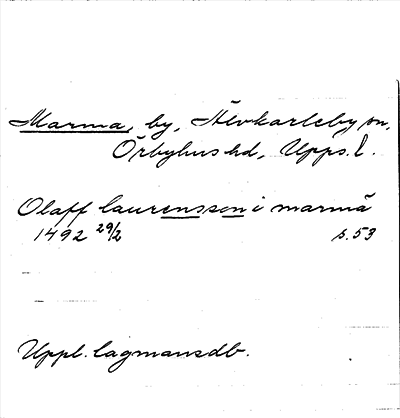 Marma, by, Älvkarleby sn,
Örbyhus hd, Upps. l.
Olaff laurensson i marmā
1492 29/2 s. 53
Uppl. lagmansdb.